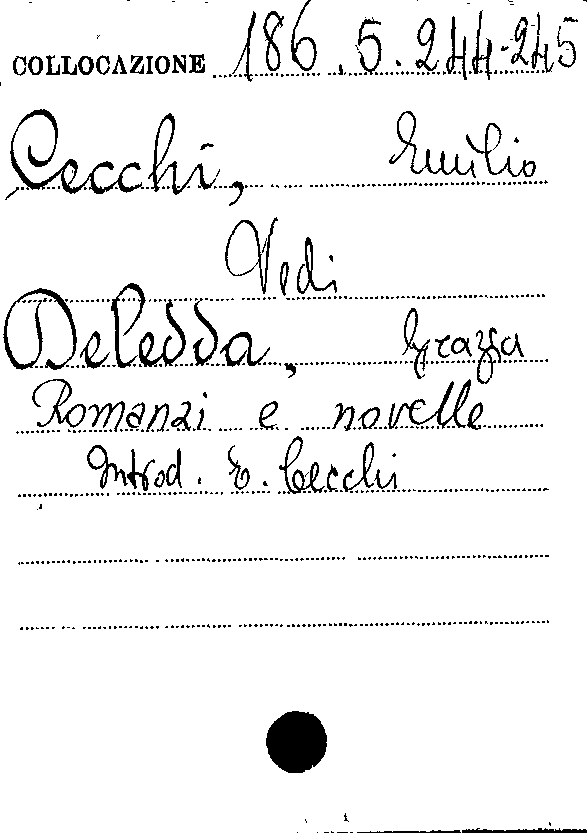 COLLOCAZIONE 186.5.244-245
Cecchi, Emilio
Vedi
Deledda, Grazia
Romanzi e novelle
Introd. E. Cecchi